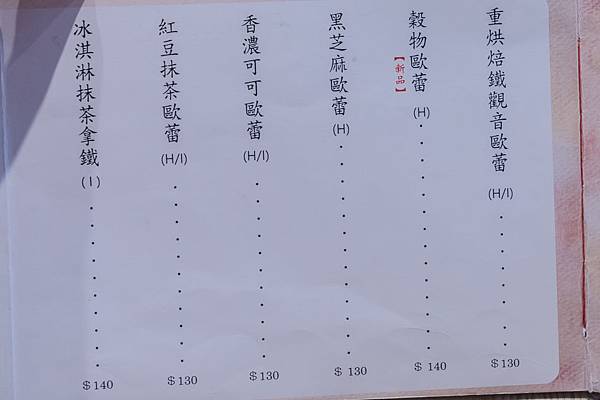 重烘焙鐵觀音歐蕾 (H/I) $130
穀物歐蕾 【新品】 (H) $140
黑芝麻歐蕾 (H) $130
香濃可可歐蕾 (H/I) $130
紅豆抹茶歐蕾 (H/I) $130
冰淇淋抹茶拿鐵 (I) $140